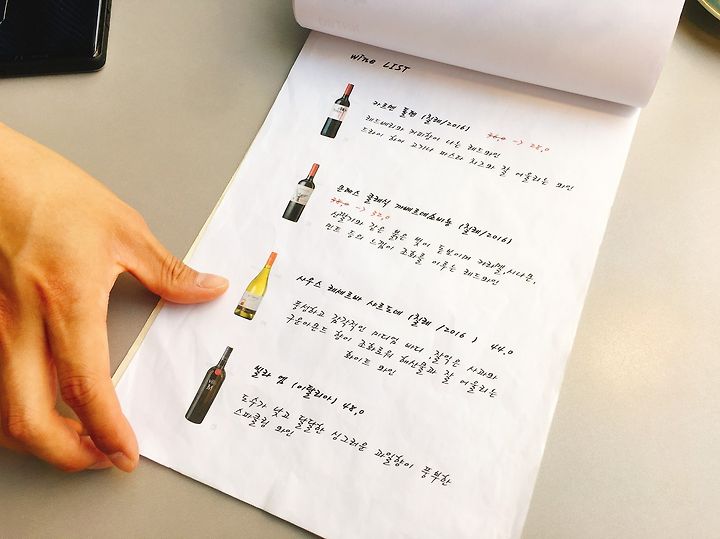 wine LIST
카르멘 톨텐 (칠레/2016) 36,0 -> 28,0
레드베리와 커피향이 나는 레드와인
드라이 하여 고기나 파스타 치즈와 잘 어울리는 와인
몬테스 클래식 까베르네소비뇽 (칠레/2016)
38,0 -> 32,0
산딸기와 같은 붉은 빛이 돋보이며 카라멜,시나몬,
민트 등의 느낌이 조화를 이루는 레드와인
사우스 레세르바 샤르도네 (칠레 /2016 ) 44.0
풍성하고 감각적인 미디엄 바디 .잘익은 사과와
구운아몬드 향이 조화로워 해산물과 잘 어울리는
화이트 와인
빌라 엠 (이탈리아) 48,0
도수가 낮고 달달한 싱그러운 과일향이 풍부한
스파클링 와인